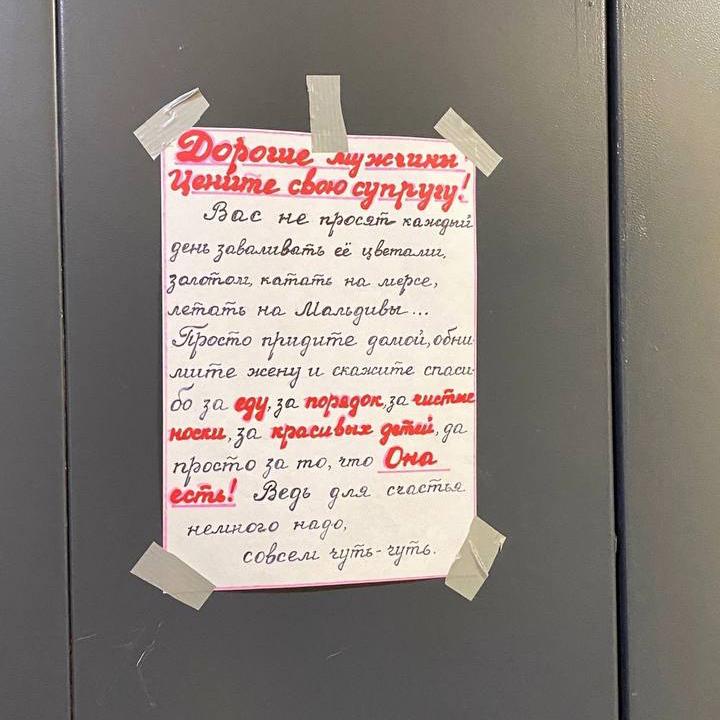 Дорогие мужчины!
Цените свою супругу!
Вас не просят каждый
день заваливать её цветами,
золотом, катать на мерсе,
летать на Мальдивы...
Просто придите домой, обни-
мите жену и скажите спаси-
бо за еду, за порядок, за чистые
носки, за красивых детей, да
просто за то, что Она
есть! Ведь для счастья
немного надо,
совсем чуть-чуть.